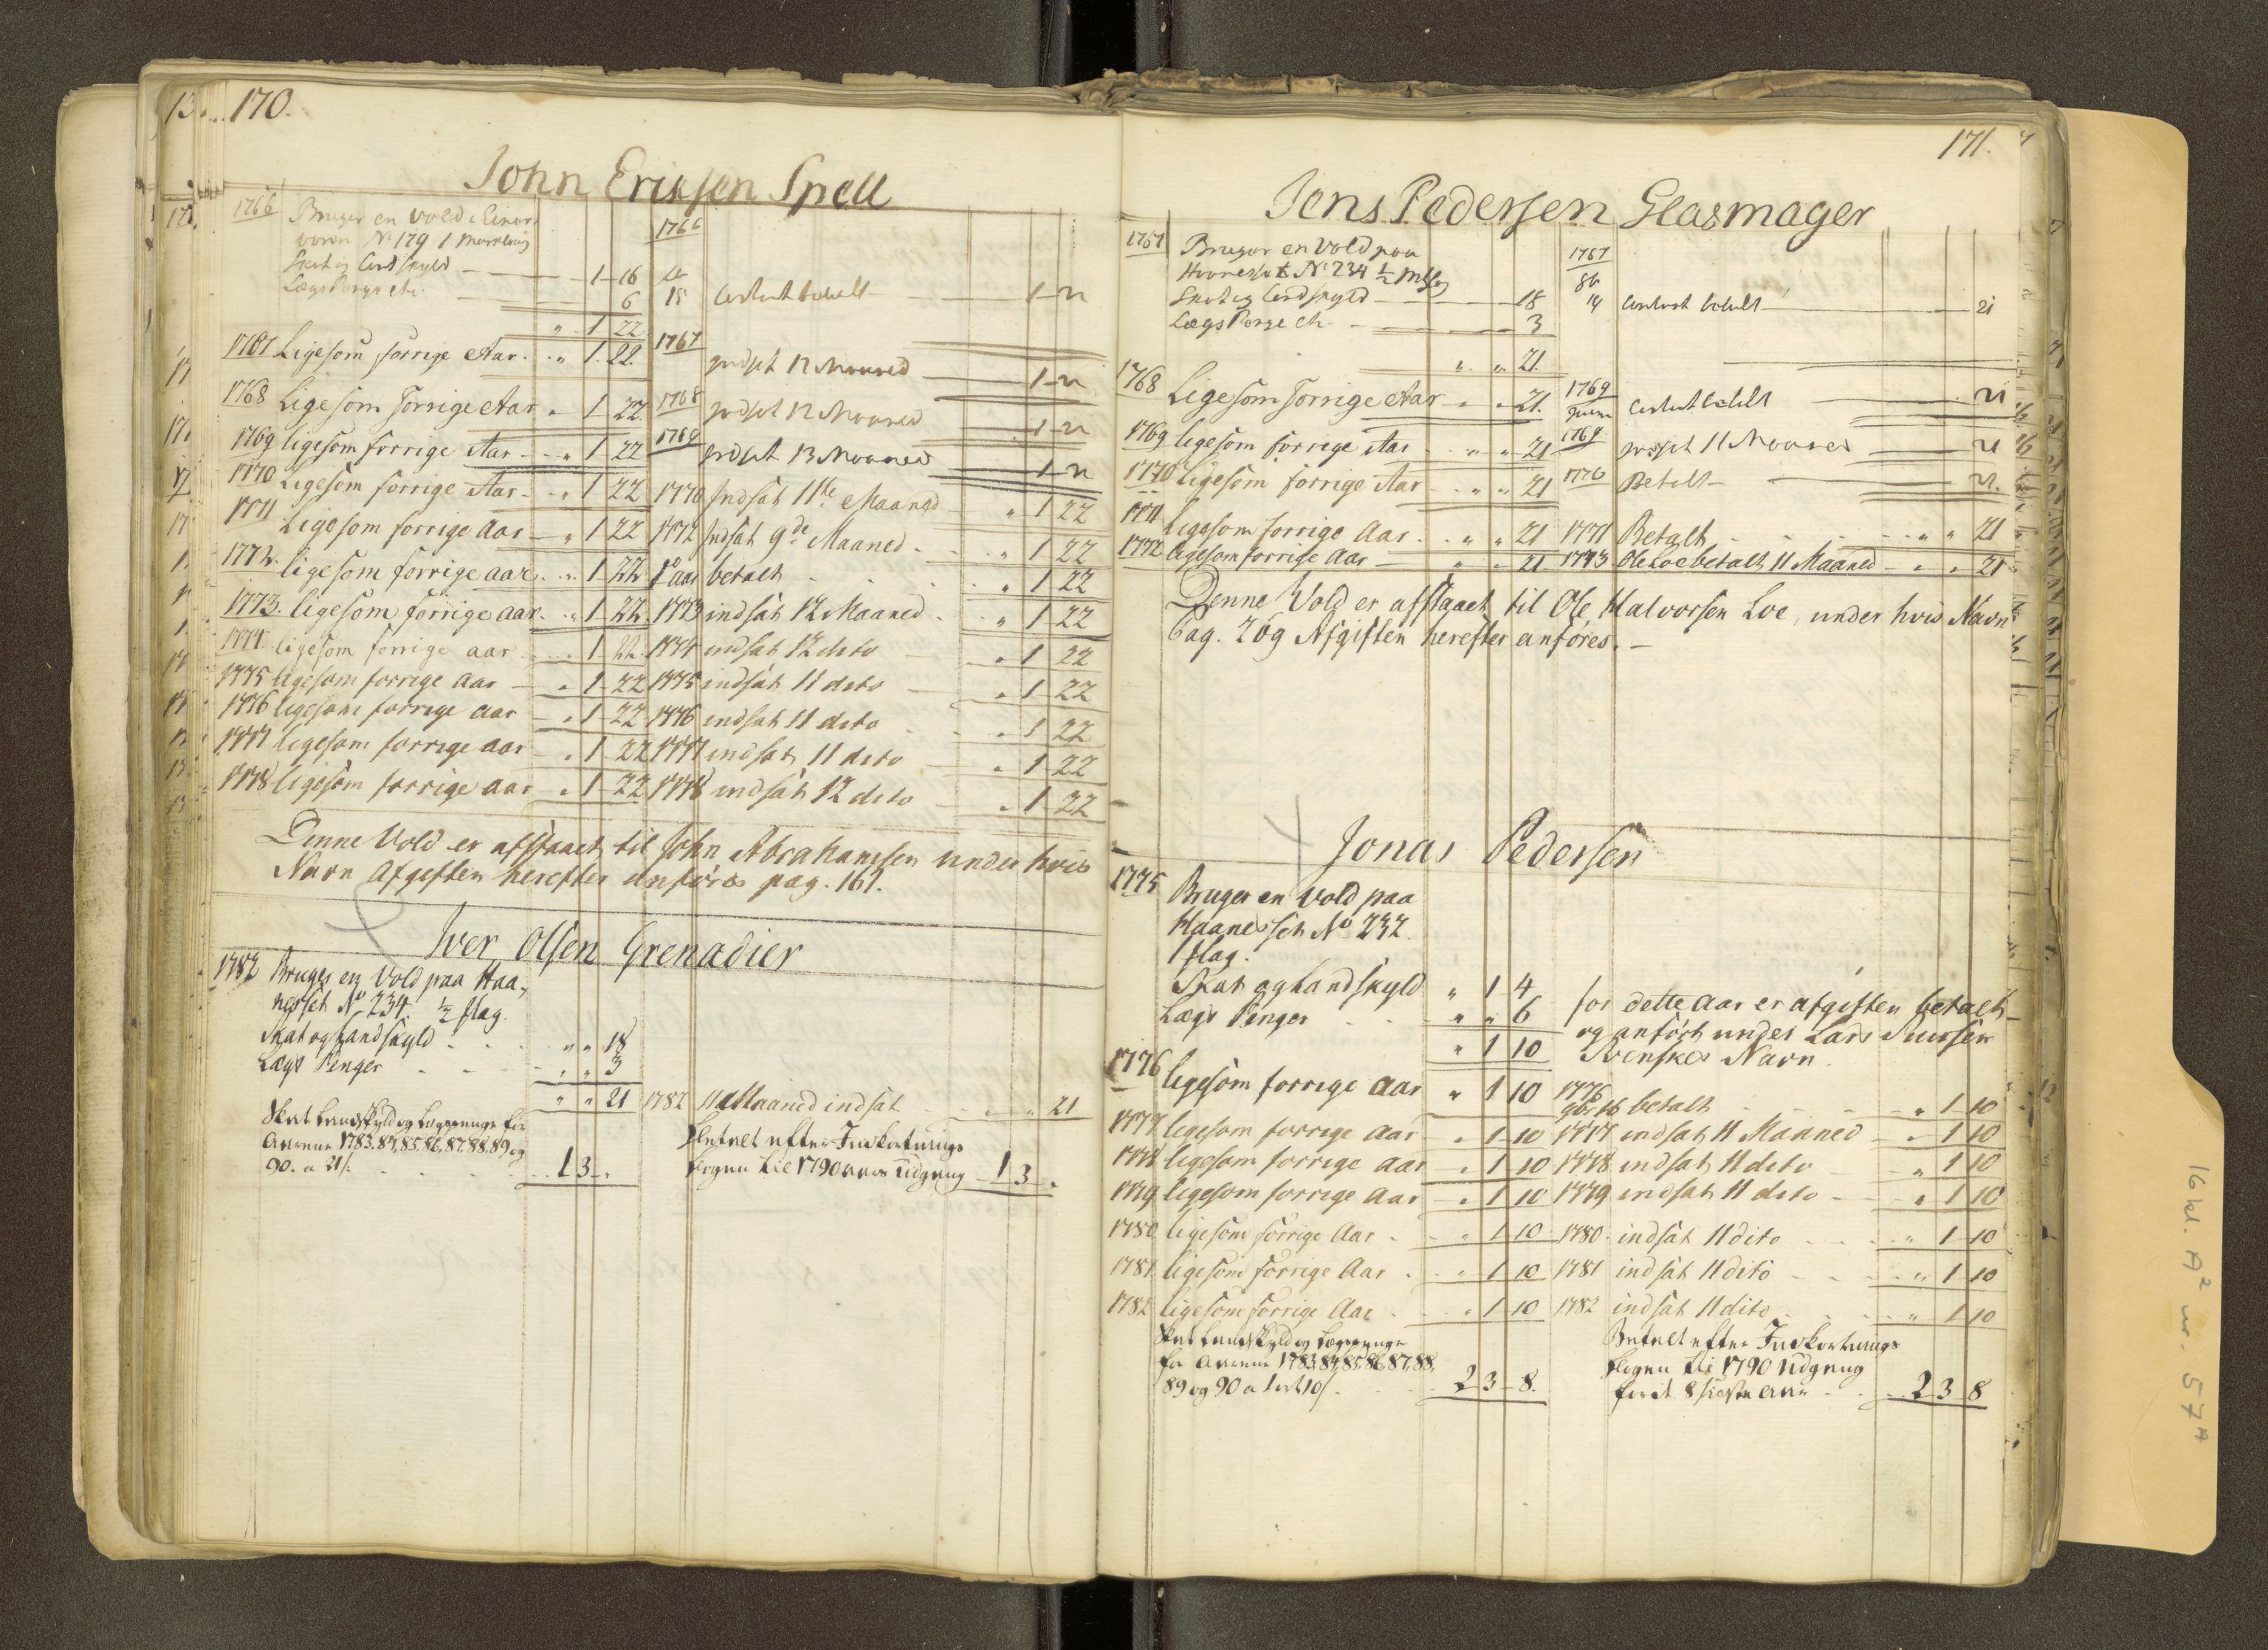 170.
John Eriksen Spell
1766 Bruger en Vold i
No 179 1
Skat og Landskyld 1 16
Lægs Penge etc. 6
" 1 22
1767 Ligesom forrige Aar " 1 22.
1768 Ligesom forrige Aar " 1 22
1769 ligesom forrige Aar " 1 22
1770 Ligesom forrige Aar " 1 22
1771 Ligesom forrige Aar " 1 22
1772. ligesom forrige aar " 1 22
1773. ligesom forrige aar " 1 22
1774 ligesom forrige aar 1 22
1775 ligesom forrige aar " 1 22
1776 ligesom forrige aar " 1 22
1777 ligesom forrige aar " 1 22
1778 ligesom forrige aar " 1 22
1766
18 betalt 1
1767
indsat 12 Maaned 1
1768 indsat 12 Maaned 1
1769
indsat 13 Maaned 1
1770 Indsat 11te Maaned " 1 22
1772 Indsat 9de Maaned " 1 22
aar betalt " 1 22
1773 indsat 12 Maaned " 1 22
1774 indsat 12 dito " 1 22
1775 indsat 11 dito " 1 22
1776 indsat 11 dito 1 22
1777 indsat 11 dito " 1 22
1778 indsat 12 dito " 1 22
Denne Vold er afstaaet til John Abrahamsen under hvis
Navn Afgiften herefter anføres pag. 167.
Iver Olsen Grenadier
1782 Bruger en Vold paa Haa-
nesset No 234. ½ flag.
Skat og Landskyld " " 18
Lægs Penger " " 3
" " 21 1782 11 Maaned indsat " 21
Skat Landskyld og Lægspenge for
Aarene 1783.84,85,86,87.88.89 og
90. a 21 s. 1 3 "
Betalt efter Indkortnings
Bogen til 1790 aars Udgang 1 3 "
171.
Jens Pedersen Glasmager
1767 Bruger en Vold paa
Haanesset No 234 ½
Skat og Landskyld 18
Lægs Penge etc. 3
" " 21.
1768 Ligesom forrige Aar " " 21.
1769 ligesom forrige Aar " " 21
1770 ligesom forrige Aar " " 21
1771 ligesom forrige Aar " " 21
1772 ligesom forrige Aar " " 21
1767
betalt 21
1769
betalt 21
1769 indsat 11 Maaned 21
1770 Betalt 21.
1771 Betalt " " 21
1773. Ole Loe betalt 11 Maaned " " 21
Denne Vold er afstaaet til Ole Halvorsen Loe, under hvis Navn
Pag. 209 Afgiften herefter anføres.
Jonas Pedersen
1775 Bruger en Vold paa
Haanesset No 232.
1 flag.
Skat og Landskyld " 1 4
Lægs Penger " " 6
" 1 10
for dette Aar er afgiften betalt
og anført under Lars
Svenskes Navn.
1776 ligesom forrige aar " 1 10
1777 ligesom forrige aar " 1 10
1778 ligesom forrige aar " 1 10
1779 ligesom forrige aar " 1 10
1780 ligesom forrige Aar " 1 10
1781 ligesom forrige Aar " 1 10
1782 ligesom forrige Aar " 1 10
1776
9br 16 betalt " 1 10
1777 indsat 11 Maaned " 1 10
1778 indsat 11 dito " 1 10
1779 indsat 11 dito " 1 10
1780 indsat 11 dito " 1 10
1781 indsat 11 dito " 1 10
1782 indsat 11 dito " 1 10
Skat Landskyld og Lægspenge
for Aarene 1783.84,85,86,87,88,
89 og 90 a 1 ort 10 s. 2 3 8.
Betalt efter Indkortnings
Bogen til 1790 Udgang
for de 8 sidste Aar 2 3 8
16 kl. A² nr. 57ᴬ